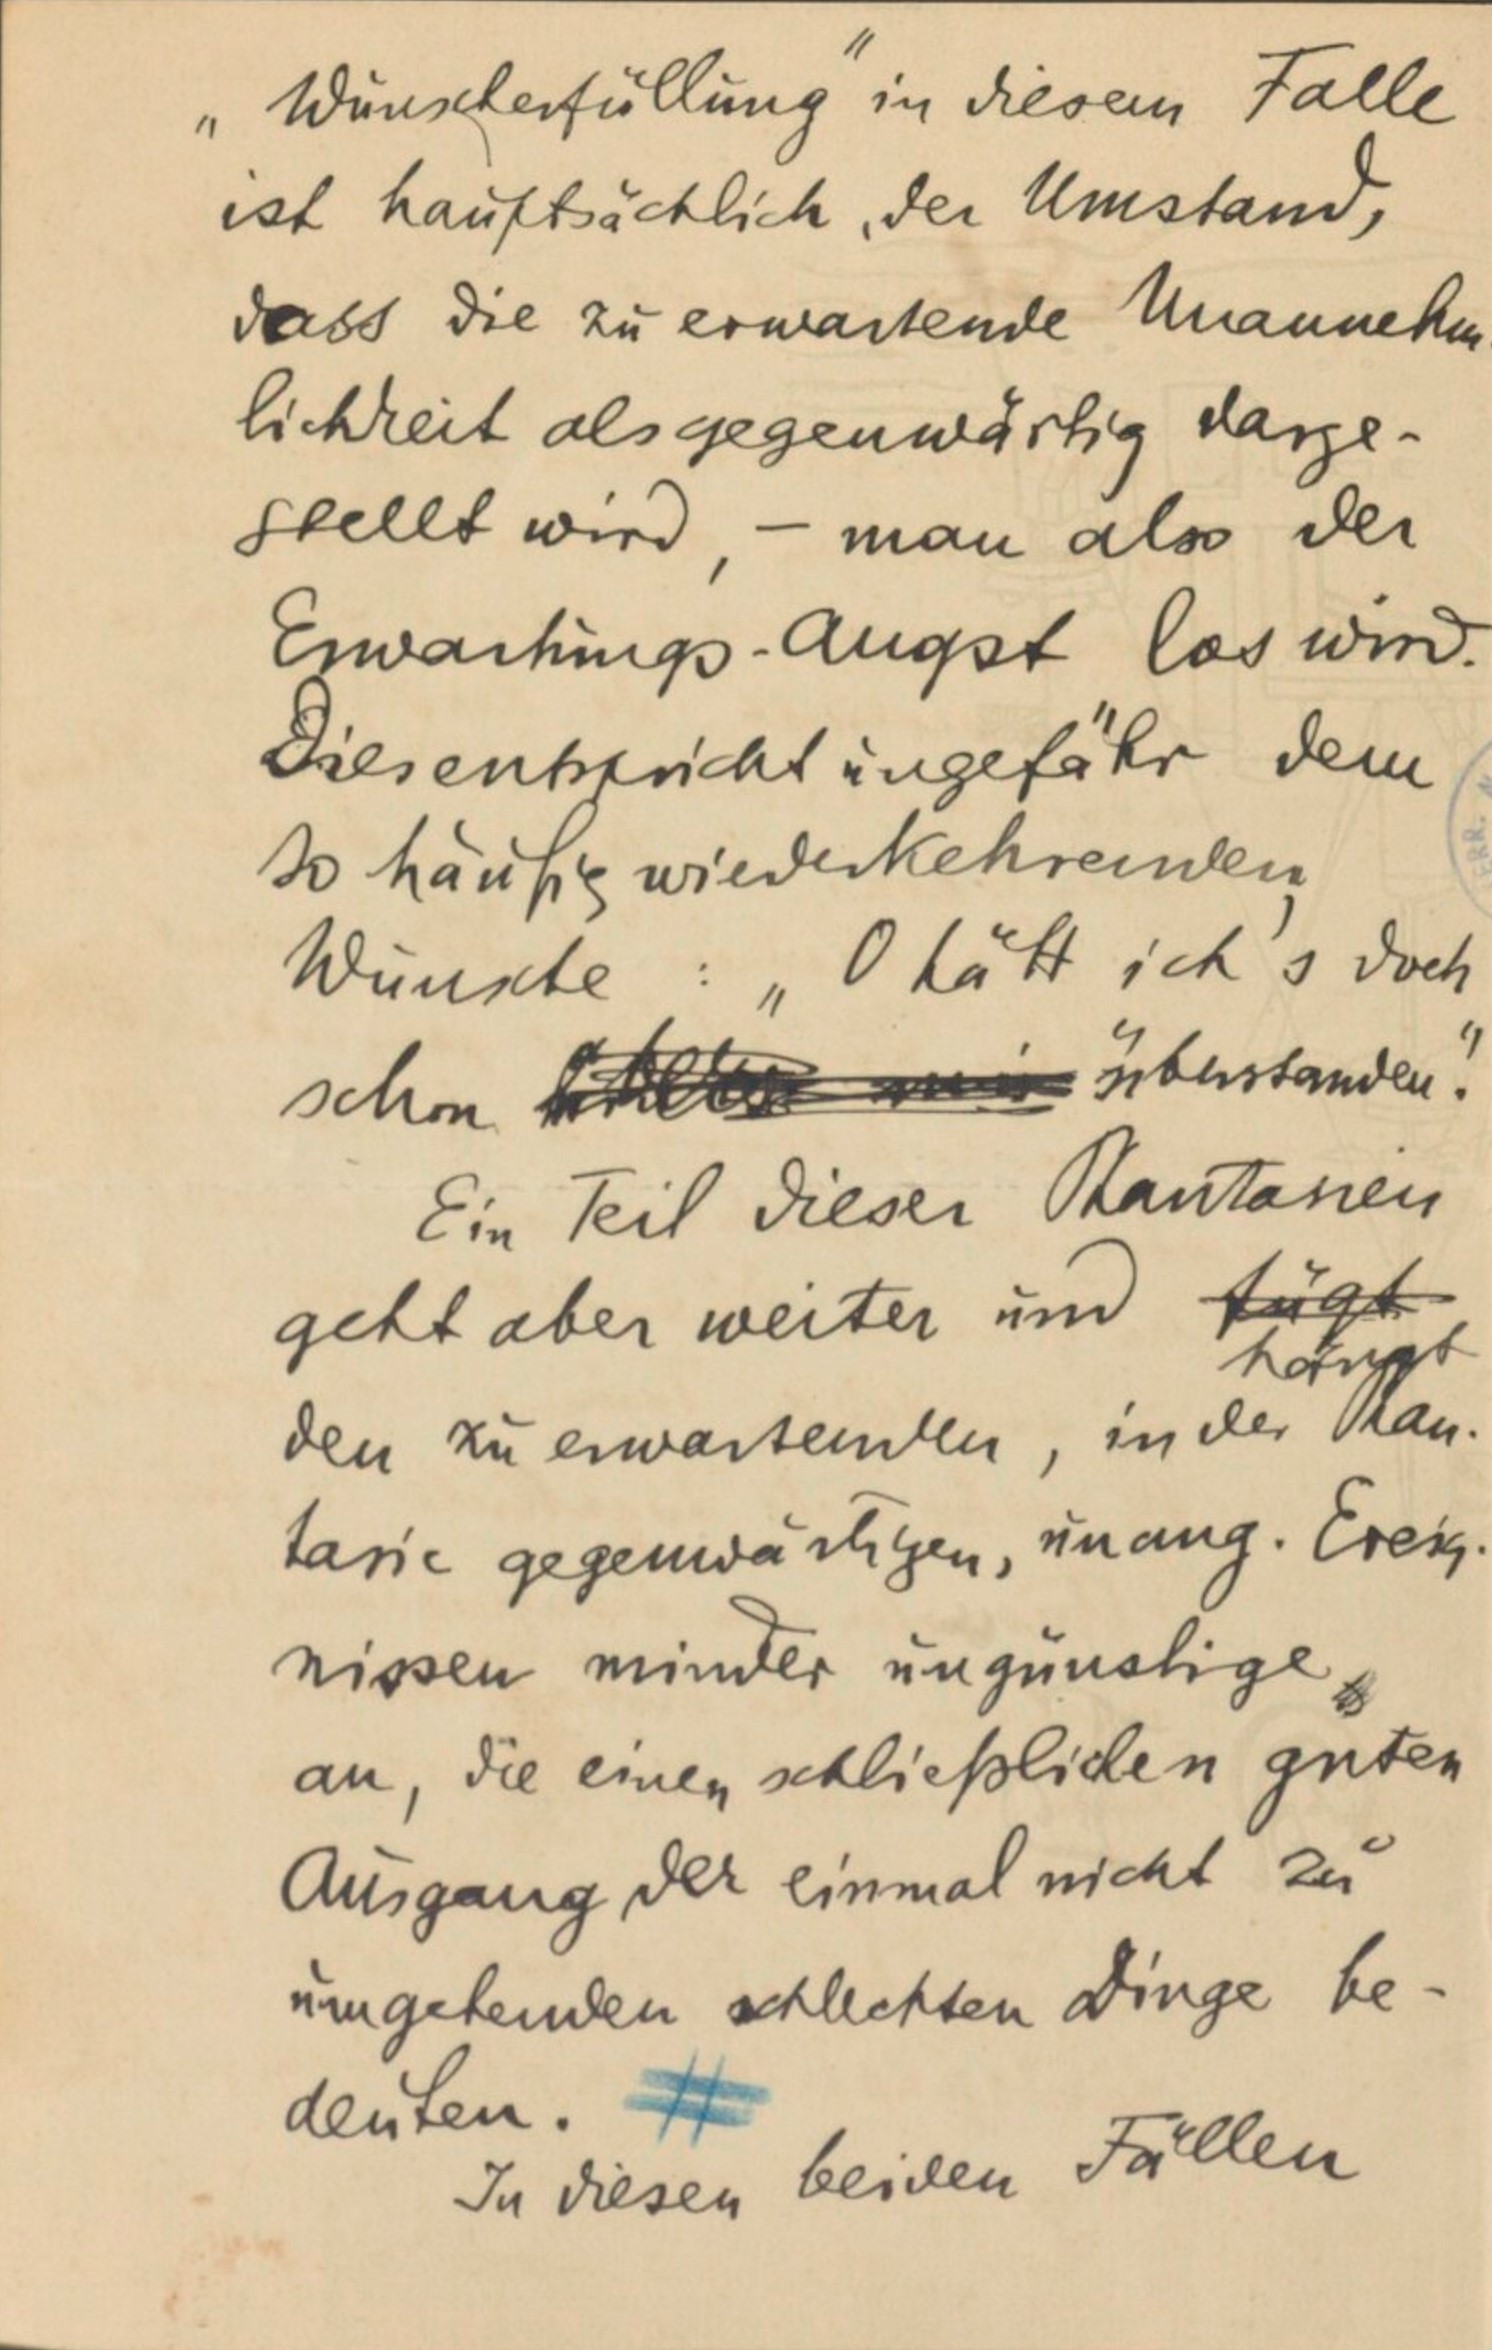 „Wunscherfüllung" in diesem Falle
ist hauptsächlich, der Umstand,
dass die zu erwartende Unannehm-
lichkeit als gegenwärtig darge-
stellt wird, – man also der
Erwartungs-Angst los wird.
Dies entspricht ungefähr dem
so häufig wiederkehrenden,
Wunsche : „O hätt ich's doch
schon überstanden".
Ein Teil dieser Phantasien
geht aber weiter und fügt
hängt
den zu erwartenden, in der Phan-
tasie gegenwärtigen, unang. Ereig-
nissen minder ungünstige
an, die einen schließlichen guten
Ausgang der einmal nicht zu
umgehenden schlechten Dinge be-
deuten. #
In diesen beiden Fällen